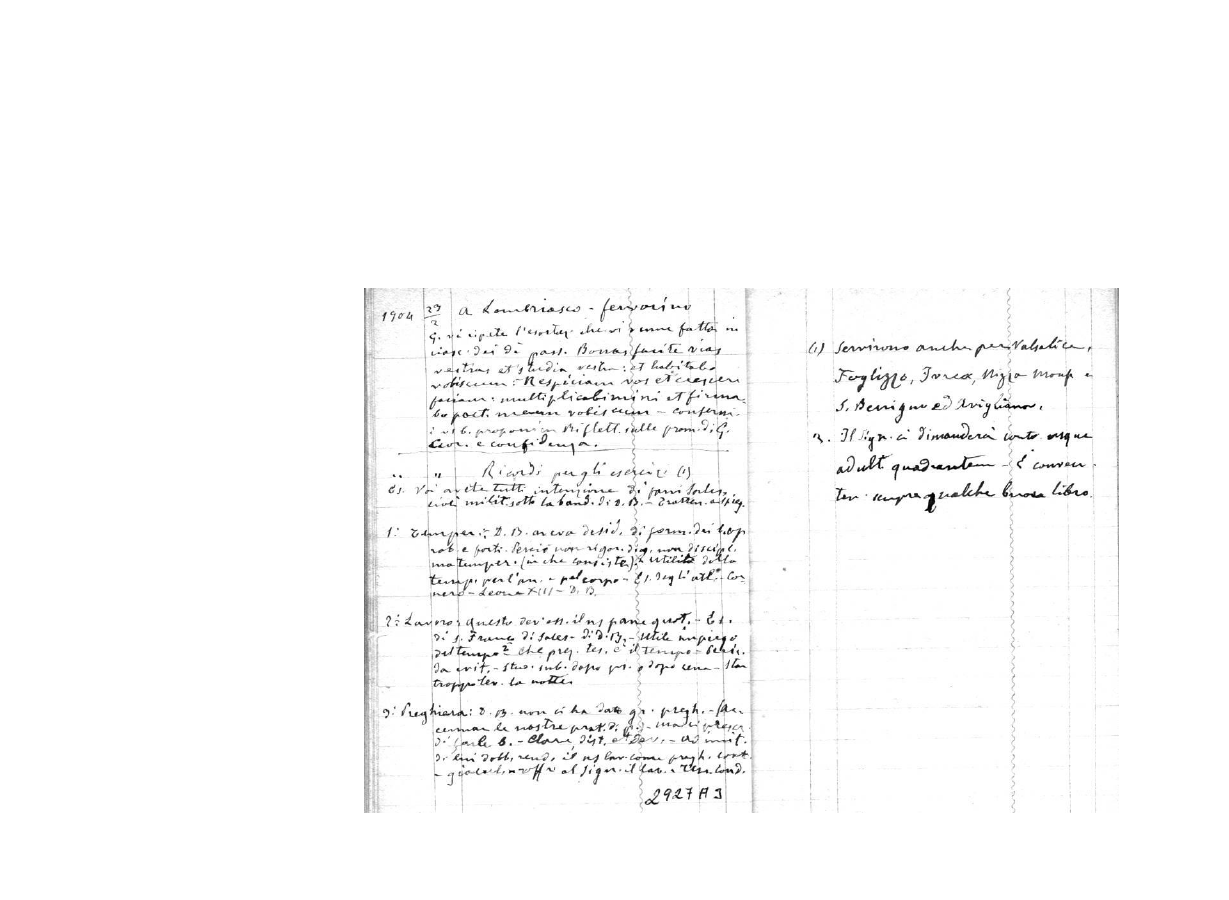 1904 23/2 A Lombriasco - fervorino
G. vi ripete l'esortaz. che vi venne fatta in
dei dì pass. Bonas facite vias
vestras et studia vestra: et habitabo
vobiscum: Respiciam vos et crescere
faciam: multiplicabimini et firma-
bo pact. meum vobiscum - conferm.
i vostri proponim. Riflett. sulle prom. di G.
Cor. e confidenza.
" " Ricordi per gli esercizi (1)
Es. Voi avete tutti intenzione di farvi Sales.
cioè milit. sotto la band. di D. B. -
1: Temper.: D. B. aveva desid. di form. dei
rob. e forti. Perciò non rigor. dig. non discipl.
ma temper. (in che consiste). Utilità della
temp. per l'an. - pel corpo - Es. degli atl. - Cor-
nero - Leone XIII - D. B.
2: Lavoro: questo dev'ess. il ns pane quot. - Es.
di S. Franc. di Sales - di D. B. - Utile impiego
del tempo - Che prez. tes. è il tempo -
da evit. - stud. sub. dopo pr. o dopo cena - star
troppo lev. la notte.
3: Preghiera: D. B. non ci ha dato gr. pregh. -
le nostre prat. di p.
di farle b. - Chiare, dist. e dev. - Ad imit.
di lui dobb. rend. il ns lav. come pregh. cont.
offr. al Sign. il lav.
2927 A 3
(1) Servirono anche per Valsalice,
Foglizzo, Ivrea, Nizza Monf. e
S. Benigno ed Avigliana.
2. Il Sign. ci dimanderà conto usque
ad ult. quadrantem - È conven.
ten. sempre qualche buon libro.